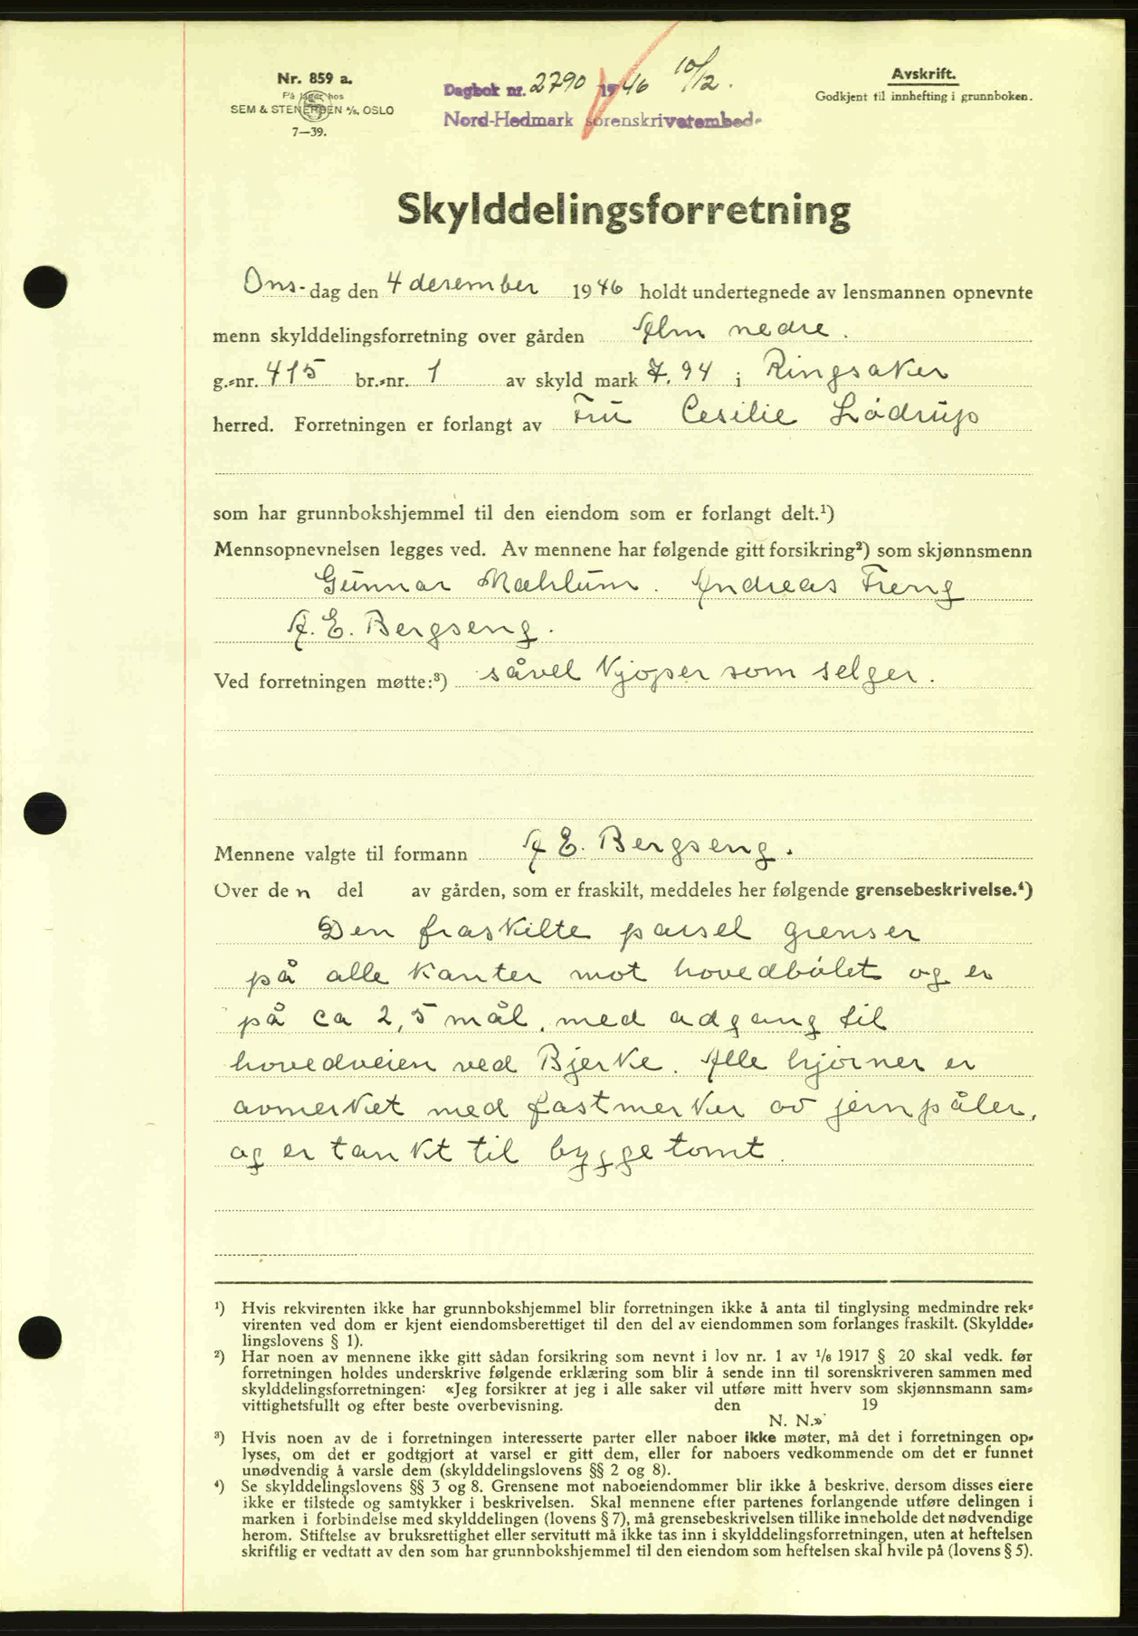 Nr. 859 a.
På lager hos
SEM & STENERSEN A/s, OSLO
7—39.
Dagbok nr. 2790 1946 10/12.
Nord-Hedmark sorenskriverembede
Avskrift.
Godkjent til innhefting i grunnboken.
Skylddelingsforretning
Ons-dag den 4 desember 1946 holdt undertegnede av lensmannen opnevnte
menn skylddelingsforretning over gården Alm nedre.
g.-nr. 415 br.-nr. 1 av skyld mark 7.94 i Ringsaker
herred. Forretningen er forlangt av Fru Cesilie Lødrup
som har grunnbokshjemmel til den eiendom som er forlangt delt.¹)
Mennsopnevnelsen legges ved. Av mennene har følgende gitt forsikring²) som skjønnsmenn
Gunnar Mæhlum. Andreas Freng
A. E. Bergseng.
Ved forretningen møtte:³) såvel kjøper som selger.
Mennene valgte til formann A E. Bergseng.
Over den del av gården, som er fraskilt, meddeles her følgende grensebeskrivelse.⁴)
Den fraskilte parsel grenser
på alle kanter mot hovedbølet og er
på ca 2,5 mål, med adgang til
hovedveien ved Bjerke. Alle hjørner er
avmerket med fastmerker av jernpåler,
og er tankt til byggetomt.
¹) Hvis rekvirenten ikke har grunnbokshjemmel blir forretningen ikke å anta til tinglysing medmindre rek-
virenten ved dom er kjent eiendomsberettiget til den del av eiendommen som forlanges fraskilt. (Skyldde-
lingslovens § 1).
²) Har noen av mennene ikke gitt sådan forsikring som nevnt i lov nr. 1 av 1/6 1917 § 20 skal vedk. før
forretningen holdes underskrive følgende erklæring som blir å sende inn til sorenskriveren sammen med
skylddelingsforretningen: «Jeg forsikrer at jeg i alle saker vil utføre mitt hverv som skjønnsmann sam-
vittighetsfullt og efter beste overbevisning. den 19
N. N.»
³) Hvis noen av de i forretningen interesserte parter eller naboer ikke møter, må det i forretningen op-
lyses, om det er godtgjort at varsel er gitt dem, eller for naboers vedkommende om det er funnet
unødvendig å varsle dem (skylddelingslovens §§ 2 og 8).
⁴) Se skylddelingslovens §§ 3 og 8. Grensene mot naboeiendommer blir ikke å beskrive, dersom disses eiere
ikke er tilstede og samtykker i beskrivelsen. Skal mennene efter partenes forlangende utføre delingen i
marken i forbindelse med skylddelingen (lovens § 7), må grensebeskrivelsen tillike inneholde det nødvendige
herom. Stiftelse av bruksrettighet eller servitutt må ikke tas inn i skylddelingsforretningen, uten at heftelsen
skriftlig er vedtatt av den som har grunnbokshjemmel til den eiendom som heftelsen skal hvile på (lovens § 5).